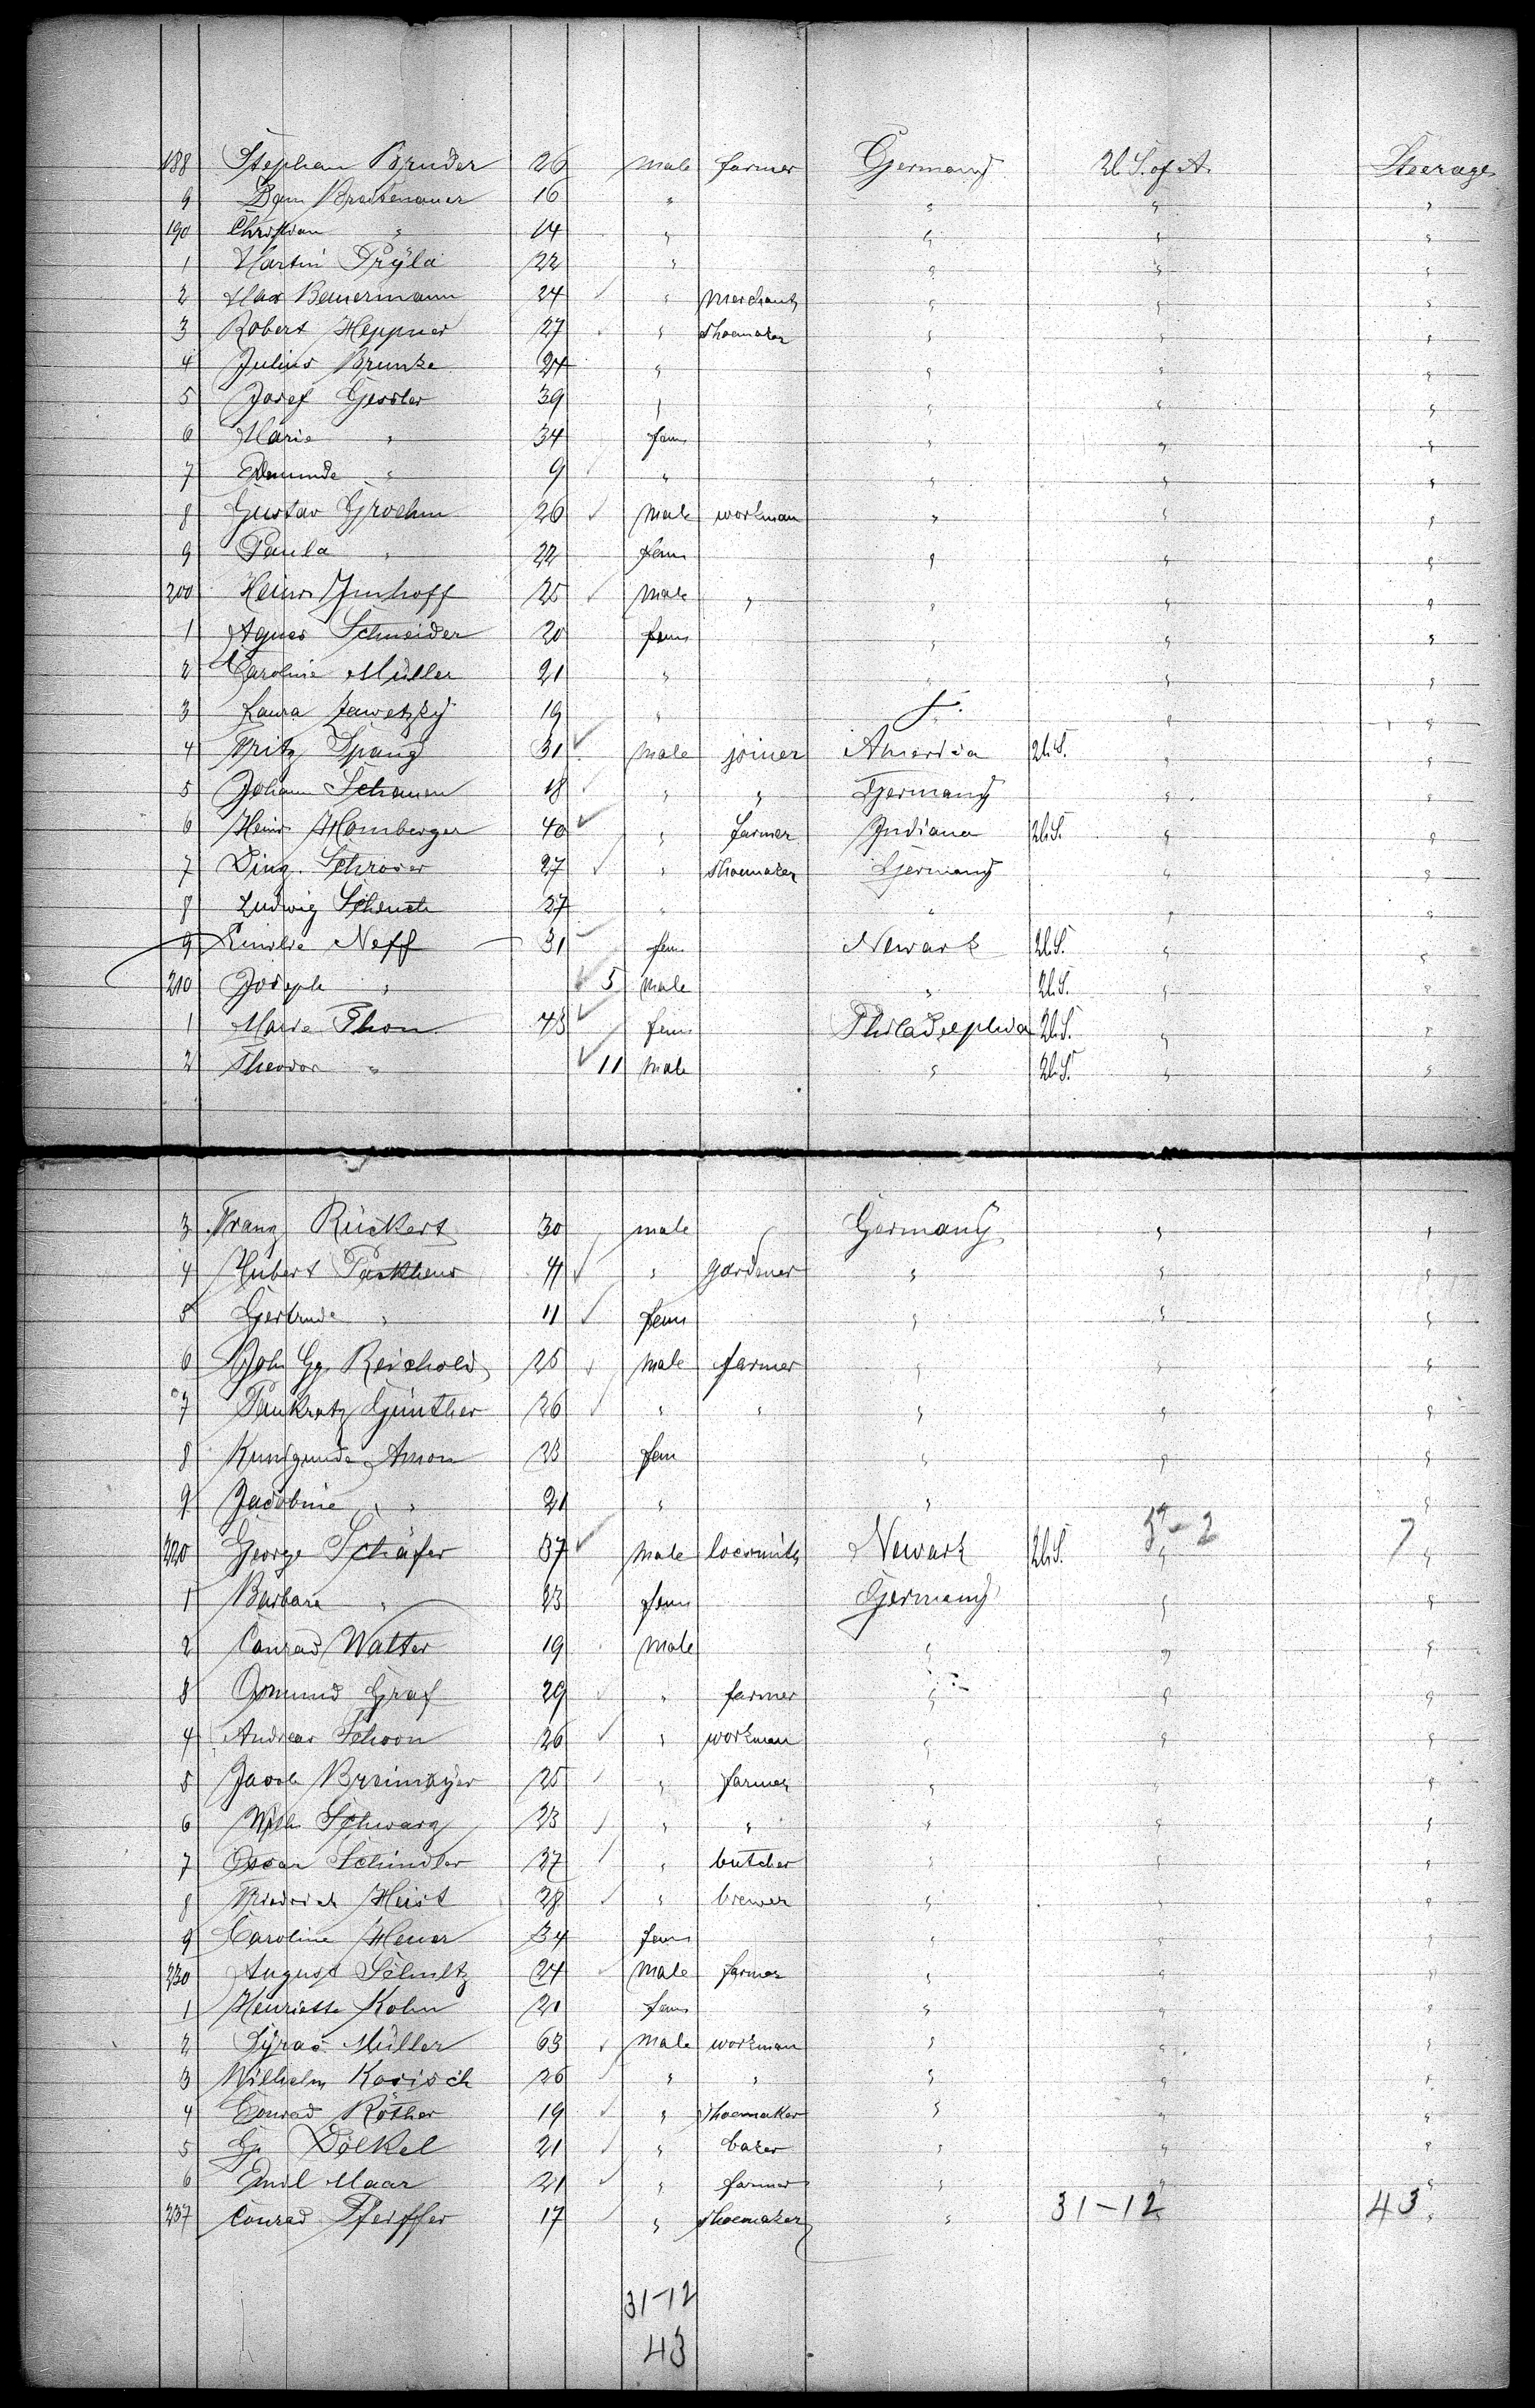 188 Stephan Bruder 26 male farmer Germany U.S. of A. Steerage
9 Dam 16 " " " "
190 Christian " 14 " " " "
1 Martin Pryla 22 " " " "
2 Max Bauermann 24 " merchant " " "
3 Robert Heppner 27 " shoemaker " " "
4 Julius Brunke 24 " " " "
5 Josef Gessler 39 " " " "
6 Marie " 34 fem " " "
7 " 9 " " " "
8 Gustav Groehm 26 male workman " " "
9 Paula " 22 fem " " "
200 Heinr Imhoff 25 male " " " "
1 Agnes Schneider 20 fem " " "
2 Caroline Müller 21 " " " "
3 Laura Jawetzky 19 " " " "
4 Fritz Spang 31 male joiner America U.S. " "
5 Johann Schauen 18 " " Germany " "
6 Heinr Homberger 40 " farmer Indiana U.S. " "
7 27 " shoemaker Germany " "
8 Ludwig 27 " " " "
9 Emilie Neff 31 fem Newark U.S. " "
210 Joseph " 5 male " U.S. " "
1 Marie Thon 43 fem Philadelphia U.S. " "
2 Theodor " 11 male " U.S. " "
3 Franz Rückert 30 male Germany " "
4 Hubert 41 " gardener " " "
5 Gertrude " 11 fem " " "
6 Joh Gg. Reichold 25 male farmer " " "
7 Pankratz Günther 26 " " " " "
8 Kunigunde Amon 23 fem " " "
9 Jacobine " 21 " " " "
5-2 7
220 George Schäfer 37 male locsmith Newark U.S. " "
1 Barbara " 23 fem Germany " "
2 Conrad Walter 19 male " " "
3 Graf 29 " farmer " " "
4 Andreas Schoon 26 " workman " " "
5 Jacob Breimayer 25 " farmer " " "
6 Wilh Schwarz 23 " " " " "
7 Oscar Schindler 37 " butcher " " "
8 Friedrich Heist 28 " brewer " " "
9 Caroline Heuer 34 fem " " "
230 August Schultz 24 male farmer " " "
1 Henriette Kohn 21 fem " " "
2 Syras Müller 63 male workman " " "
3 Wilhelm Karisch 26 " " " " "
4 Conrad Röther 19 " shoemaker " " "
5 Gg Dölkel 21 " baker " " "
6 Emil Maar 21 " farmer " " "
31-12 43
237 Conrad Pfeiffer 17 " shoemaker " " "
31-12
43